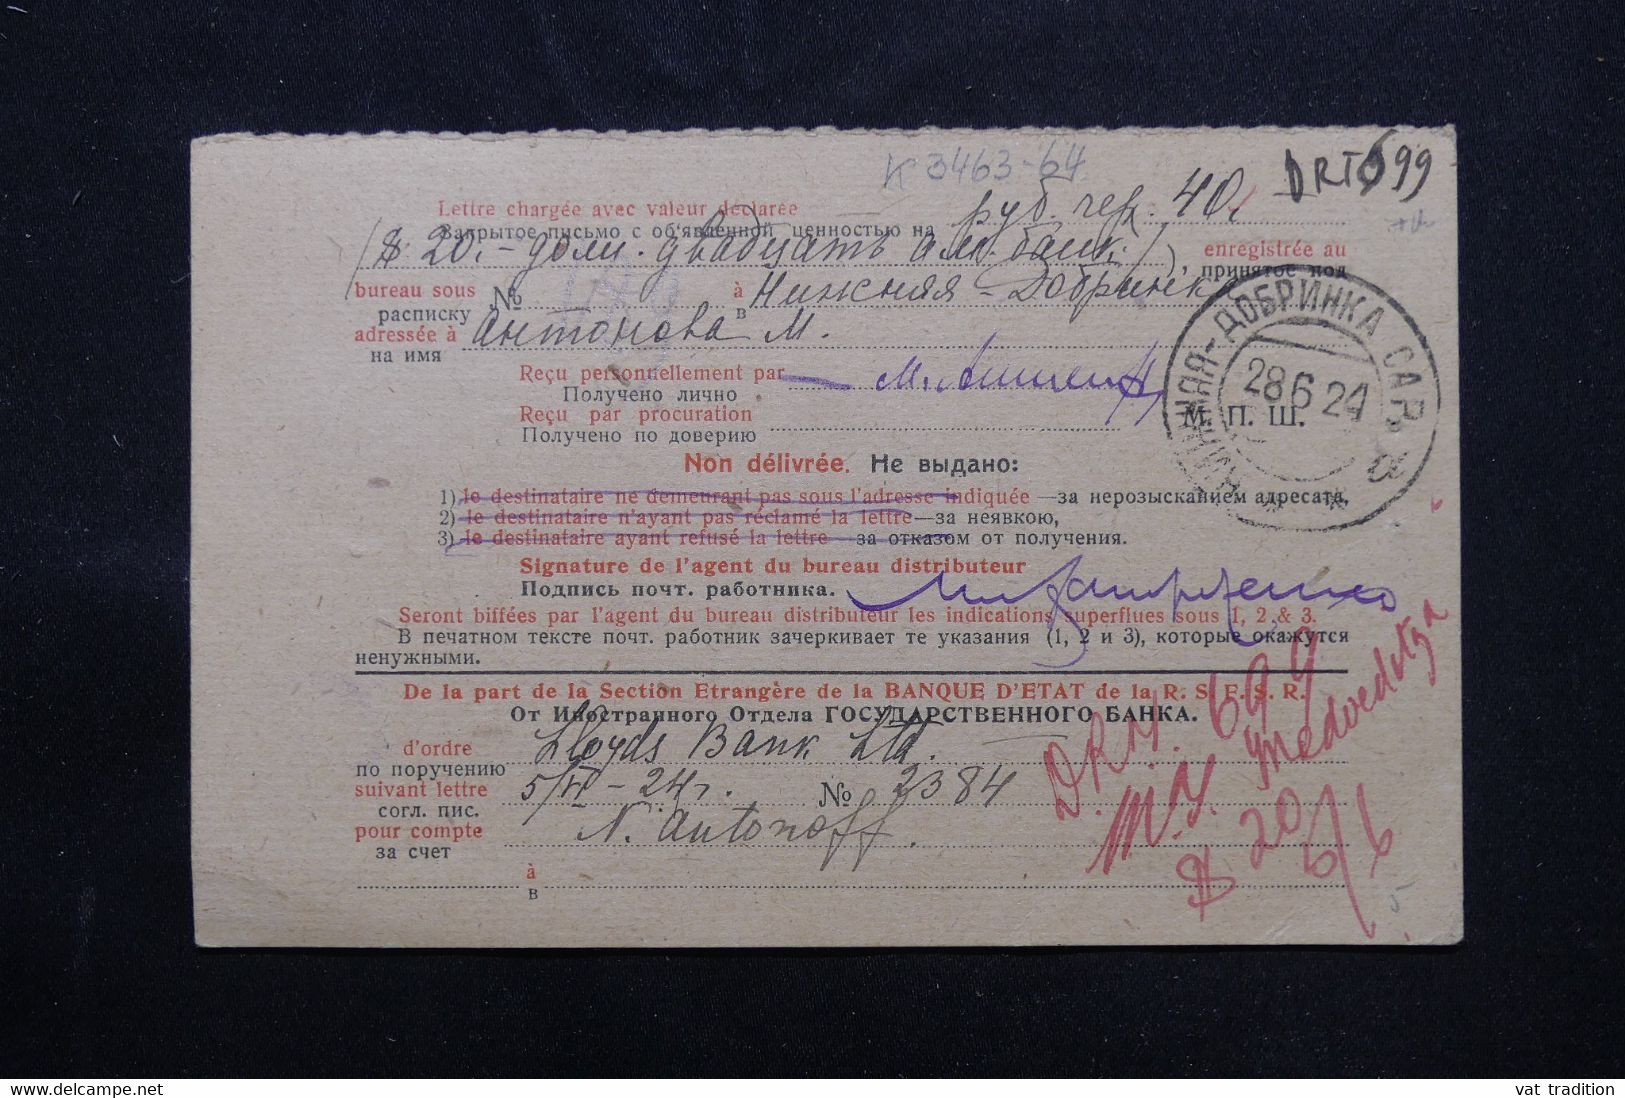 К 3463-64
DRT 699
Lettre chargée avec valeur déclarée
Закрытое письмо с об'явленной ценностью на руб. чер. 40.
($ 20.- долл. двадцать ам. банк.), enregistrée au
принятое под
bureau sous № à Нижняя-Добринка
расписку в
adressée à Антонова М.
на имя
Reçu personnellement par
Получено лично
Reçu par procuration
Получено по доверию
М. П. Ш.
НИЖНЯЯ-ДОБРИНКА САР.
28 6 24
Non délivrée. Не выдано:
1) le destinataire ne demeurant pas sous l'adresse indiquée—за нерозысканием адресата,
2) le destinataire n'ayant pas réclamé la lettre—за неявкою,
3) le destinataire ayant refusé la lettre—за отказом от получения.
Signature de l'agent du bureau distributeur
Подпись почт. работника.
Seront biffées par l'agent du bureau distributeur les indications superflues sous 1, 2 & 3.
В печатном тексте почт. работник зачеркивает те указания (1, 2 и 3), которые окажутся
ненужными.
De la part de la Section Etrangère de la BANQUE D'ETAT de la R. S. F. S. R.
От Иностранного Отдела ГОСУДАРСТВЕННОГО БАНКА.
d'ordre Lloyds Bank Ltd.
по поручению
suivant lettre 5/VI-24г. № 2384
согл. пис.
pour compte N. Antonoff
за счет
à
в
699
$ 20
6/6
vat tradition